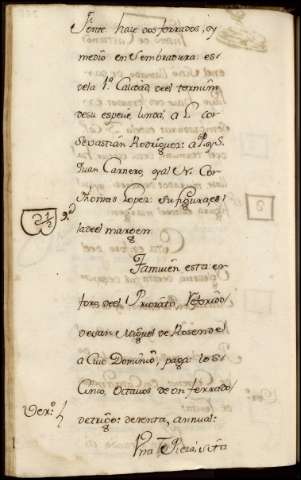 fente haze dos ferrados, y
medio en Sembradura: es
dela 1.ª Calidad deel termin.º
desu espezie linda, a L. cor
Sevastián Rodriguez: a P. y S.
Juan Carnero, y al N. Cor
Thomas Lopez: Su figura es
la deel margen
2 1/2
Tamvien esta
fore deel Priorato referido
de san Miguel de Rosende
a Cuio Dominio, paga: los
Cinco, Octavos de un ferrado
detrigo: derenta, annual:
Una Pieza